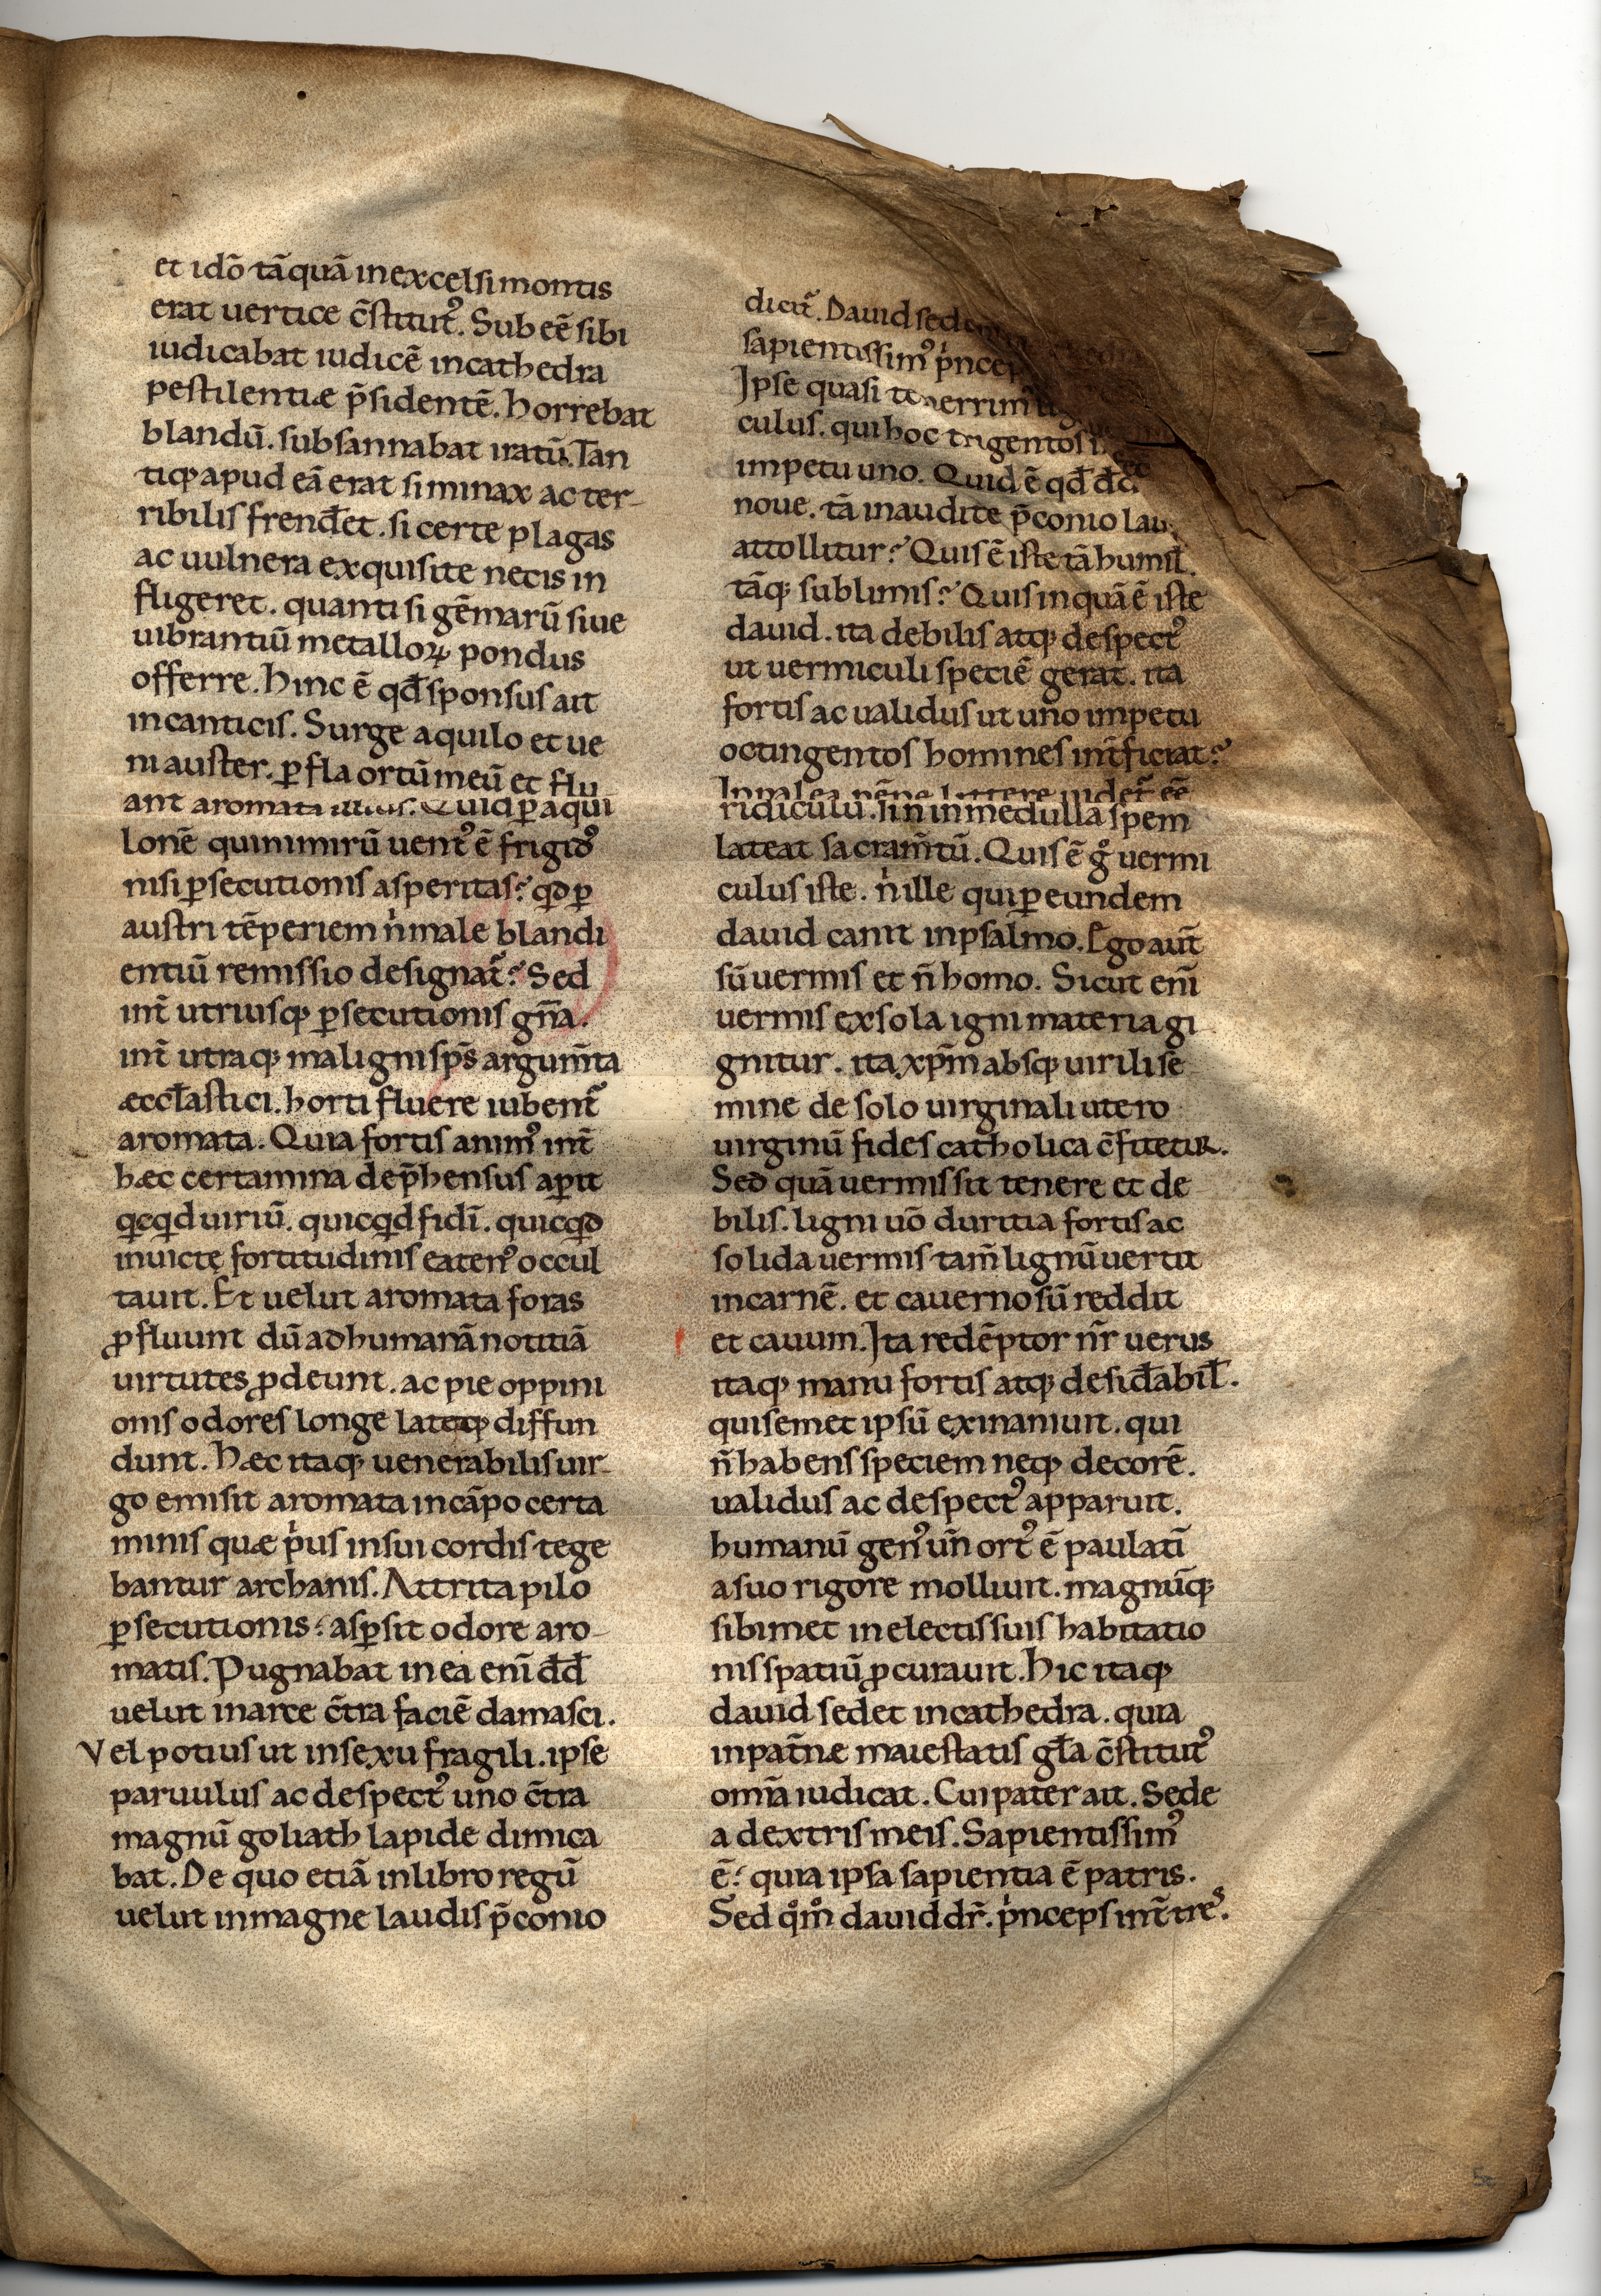 et idō tāquā in excelsi montis
erat uertice c̄stitut᷒. Sub eē sibi
iudicabat iudicē in cathedra
pestilentiæ p̄sidentē. horrebat
blandū. subsannabat iratū. Tan
tiqꝫ apud eā erat si minax ac ter-
ribilis frend̄et. si certe plagas
ac uulnera exquisite necis in
fligeret. quanti si gēmarū siue
uibrantiū metalloꝝ pondus
offerre. hinc ē qđ sponsus ait
in canticis. Surge aquilo et ue
ni auster. ꝑfla ortū meū et flu
ant aromata illius. Quid ꝑ aqui
lonē qui nimirū uent᷒ ē frigid᷒
nisi ꝑsecutionis asperitas? qd ꝑ
austri tēperiem n̍ male blandi
entiū remissio designat᷑? Sed
int̄ utriusqꝫ ꝑsecutionis gn̄a.
int̄ utraqꝫ maligni sp̄s argum̄ta
æccl̄astici. horti fluere iubent᷑
aromata. Quia fortis anim᷒ int̄
hæc certamina dep̄hensus aꝑit
qcqd uiriū. quicqd fidī. quicqd
inuictę fortitudinis eaten᷒ occul
tauit. Et uelut aromata foras
ꝓfluunt dū ad humanā notitiā
uirtutes ꝓdeunt. ac pie oppini
onis odores longe lateqꝫ diffun
dunt. hæc itaqꝫ uenerabilis uir-
go emisit aromata in cāpo certa
minis quæ p̍us in sui cordis tege
bantur archanis. Attrita pilo
ꝑsecutionis: asꝑsit odore aro-
matis. Pugnabat in ea enī dd̄
uelut in arce c̄tra faciē damasci.
Vel potius ut in sexu fragili. ipse
paruulus ac despect᷒ uno c̄tra
magnū goliath lapide dimica
bat. De quo etiā in libro regū
uelut in magne laudis p̄conio
dicit᷑. Dauid sed
sapientissim᷒ p̍ncep
Ipse quasi tenerrim᷒
culus. qui hoc trigentos
impetu uno. Quid ē qđ
noue. tā inaudite p̄conio lau
attollitur? Quis ē iste tā humil̄.
tāqꝫ sublimis? Quis inquā ē iste
dauid. ita debilis atqꝫ despect᷒
ut uermiculi speciē gerat. ita
fortis ac ualidus ut uno impetu
octingentos homines int̄ficiat?
littere uidet᷑ eē
ridiculū. ni in medulla spem
lateat sacram̄tū. Quis ē gͦ uermi
culus iste. n̍ ille qui ꝑ eundem
dauid canit in psalmo. Ego aut̄
sū uermis et n̄ homo. Sicut enī
uermis ex sola igni materia gi
gnitur. ita xp̄m absqꝫ uirili se
mine de solo uirginali utero
uirginū fides catholica c̄fitetur.
Sed quā uermis sit tenere et de
bilis. ligni uō duritia fortis ac
solida uermis tam̄ lignū uertit
in carnē. et cauernosū reddit
et cauum. Ita redēptor nr̄ uerus
itaqꝫ manu fortis atqꝫ desid̄abil̄.
qui semet ipsū exinaniuit. qui
n̄ habens speciem neqꝫ decorē.
ualidus ac despect᷒ apparuit.
humanū gen᷒ un̄ ort᷒ ē paulatī
a suo rigore molliuit. magnūqꝫ
sibimet in electis suis habitatio
nis spatiū ꝓcurauit. hic itaqꝫ
dauid sedet in cathedra. quia
in pat̄næ maiestatis gl̄a c̄stitut᷒
om̄a iudicat. Cui pater ait. Sede
a dextris meis. Sapientissim᷒
ē: quia ipsa sapientia ē patris.
Sed qͦmͦ dauid dr̄. p̍nceps int̄ tres.